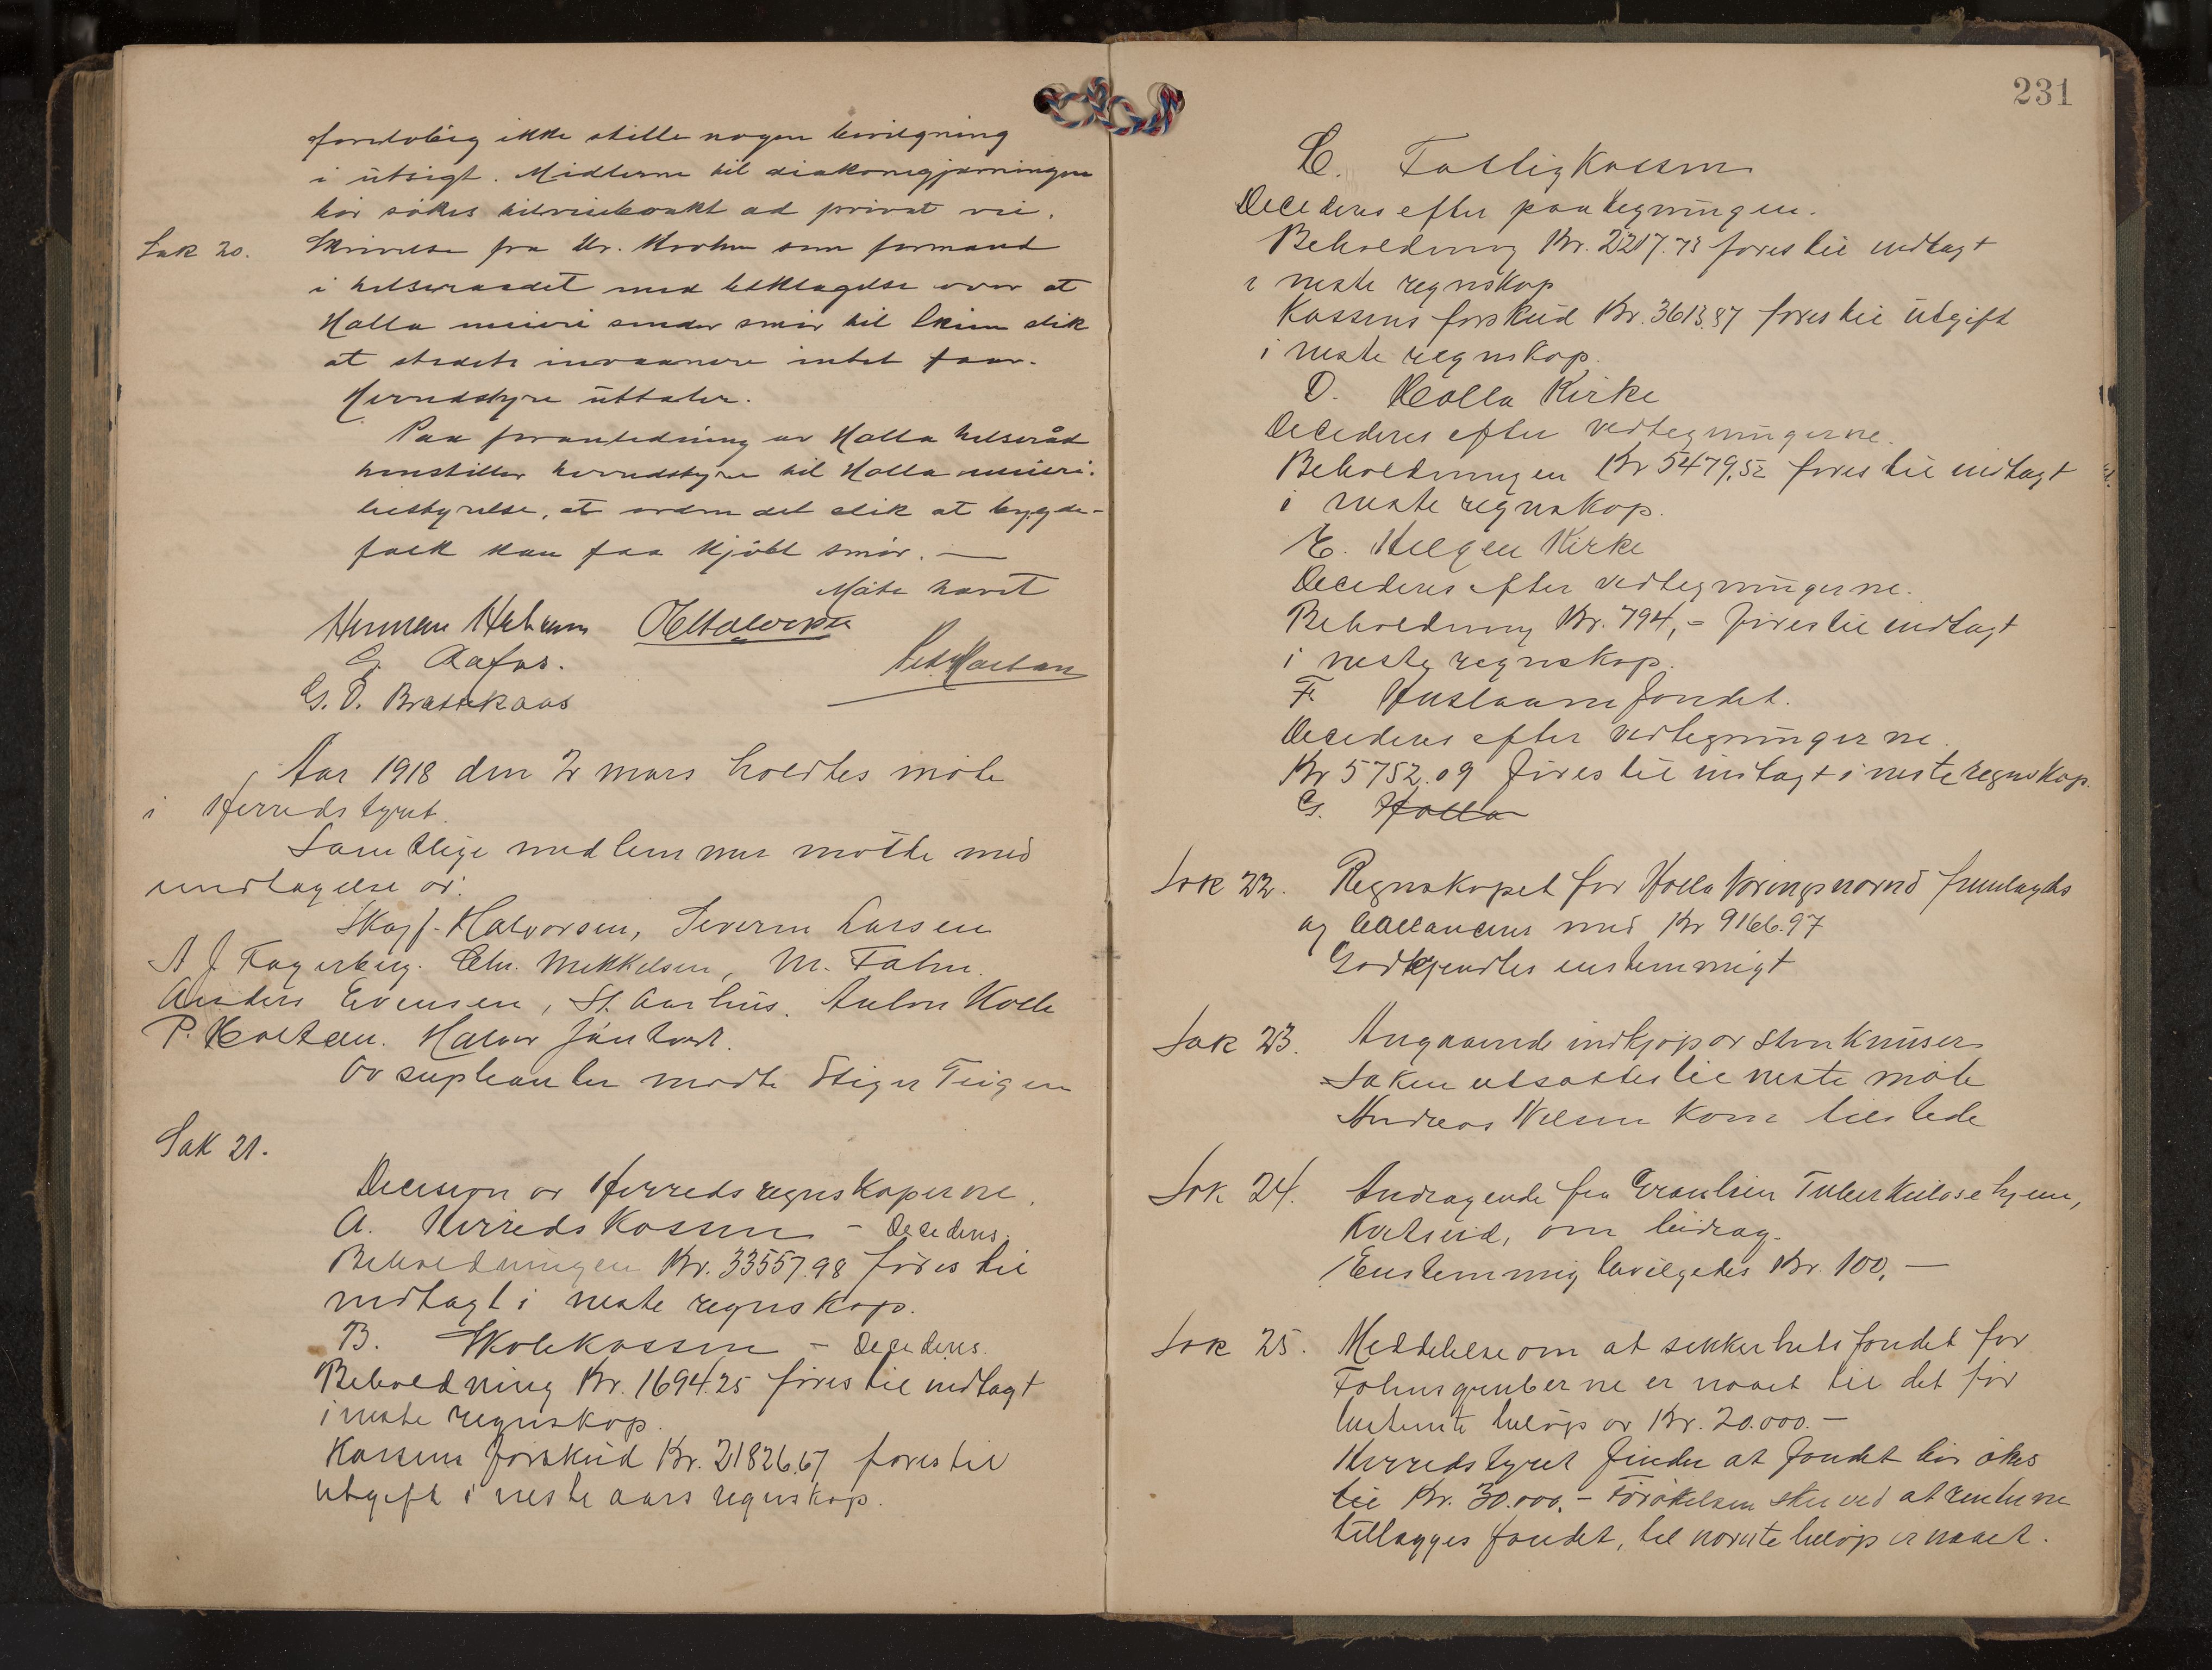 foreløbig ikke stille nogen bevilgning
i utsigt. Midlerne til diakonigjerningen
bør søkes tilveiebragt ad privat vei.
Sak 20. Skrivelse fra Dr. Krohn som formand
i helseraadet med beklagelse over at
Holla meieri sender smør til Skien slik
at stedets invaanere intet faar.
Herredstyre uttaler.
Paa foranledning av Holla helseråd
henstiller herredstyre til Holla meieri-
bestyrelse, at ordne det slik at bygde-
folk kan faa kjøbt smør. —
Møte hævet
Herman
G. Aafos.
G. O. Brattekaas
Aar 1918 den 2 mars holdtes møte
i Herredstyret.
Samtlige medlemmer møtte med
undtagelse av:
Skoff. Halvorsen, Severin Larsen
A J. Fagerberg. Chr. Mikkelsen, M. Fahn.
Anders Evensen, St. Aarhus. Anton Kolle
P. Holtan. Halvor
Av supleanter mødte Stiger Teigen
Sak 21.
Decision av Herredsregnskaperne.
A. Herredskassen – Decideres.
Beholdningen Kr. 33557.98 føres til
indtægt i neste regnskap.
B. Skolekassen – Decideres.
Beholdning Kr. 1694.25 føres til indtægt
i neste regnskap.
Kassens forskud Kr. 21826.67 føres til
utgift i neste aars regnskap.
231
C. Fattigkassen
Decideres efter paategningen.
Beholdning Kr. 2217.73 føres til indtægt
i neste regnskap
Kassens forskud Kr. 3613.87 føres til utgift
i neste regnskap.
D. Holla Kirke
Decideres efter vedtegningerne.
Beholdningen Kr 5479,52 føres til indtægt
i neste regnskap.
E. Helgen Kirke
Decideres efter vedtegningerne.
Beholdning Kr. 794,- føres til indtægt
i neste regnskap.
F. Huslaanefondet.
Decideres efter vedtegningerne.
Kr 5752.09 føres til indtægt i neste regnskap.
G. Holla
Sak 22. Regnskapet for Holla Veringsnævnd fremlagdes
og ballancerer med Kr 9166.97
Godkjendtes enstemmigt
Sak 23. Angaaende indkjøp av stenknuser
Saken utsattes til neste møte
Andreas Nilsen kom tilstede
Sak 24. Andragende fra Granlien Tuberkulosehjem,
om bidrag.
Enstemmig bevilgedes Kr. 100,—
Sak 25. Meddelelse om at sikkerhetsfondet for
Fehnsgruberne er naaet til det før
bestemte beløp av Kr. 20.000.—
Herredstyret finder at fondet bør økes
til Kr. 30.000.– Forøkelsen sker ved at renterne
tillægges fondet, til nævnte beløp er naaet.